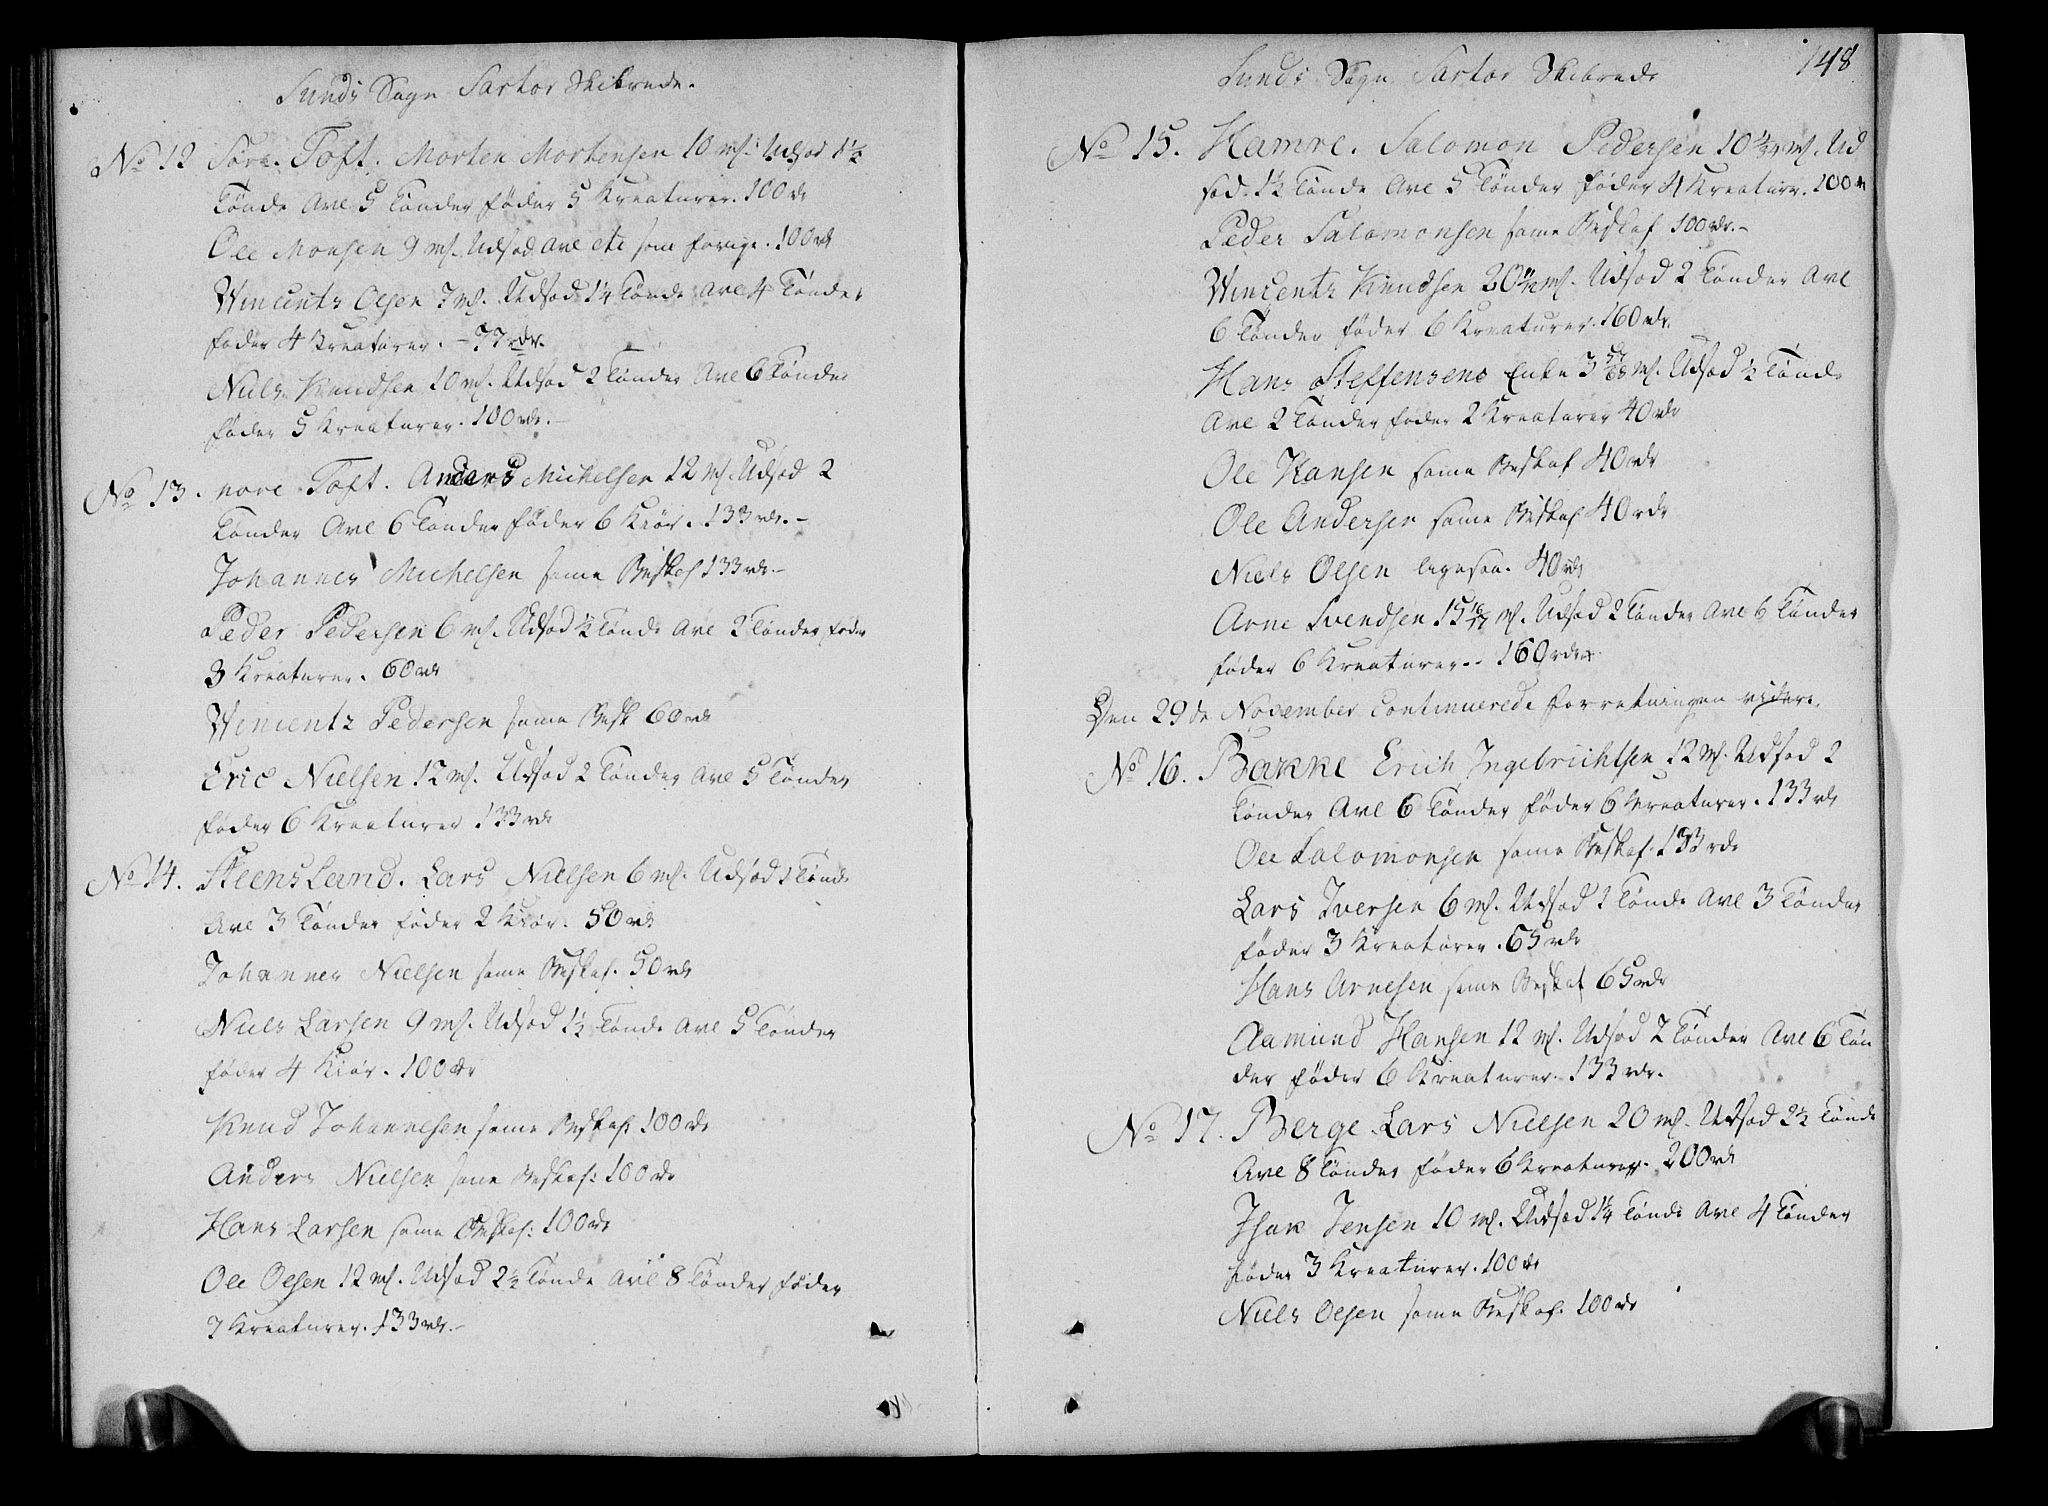 Sunds Sogn Sartor Skibrede.
No 12 Søre Toft. Morten Mortensen 10 mf. Udsød 1½
Tønde Avl 5 Tønder føder 5 Kreaturer. 100 rdr
Ole Monsen 9 mf. Udsæd Avl etc som forige. 100 rdr
Wincentz Olsen 7 mf. Udsæd 1¼ Tønde Avl 4 Tønder
føder 4 Kreaturer. - 77 rdr.
Niels Knudsen 10 mf. Udsæd 2 Tønder Avl 6 Tønder
føder 5 Kreaturer. 100 rdr. -
No 13. nore Toft. Anders Michelsen 12 mf. Udsæd 2
Tønder Avl 6 Tønder føder 6 Kiør. 133 rdr. -
Johannes Michelsen same Beskaf 133 rdr. -
Peder Pedersen 6 mf. Udsæd ½ Tønde Avl 2 Tønder føder
3 Kreaturer. 60 rdr
Wincentz Pedersen same Besk 60 rdr
Eric Nielsen 12 mf. Udsæd 2 Tønder Avl 5 Tønder
føder 6 Kreaturer 133 rdr
No 14. Steensland. Lars Nielsen 6 mf. Udsæd 1 Tønde
Avl 3 Tønder føder 2 Kiør. 50 rdr
Johannes Nielsen same Beskaf. 50 rdr
Niels Larsen 9 mf. Udsæd 1½ Tønde Avl 5 Tønder
føder 4 Kiør. 100 rdr
Knud Johannesen same Beskaf: 100 rdr
Anders Nielsen same Beskaf: 100 rdr
Hans Larsen same Beskaf: 100 rdr
Ole Olsen 12 mf. Udsæd 2½ Tønde Avl 8 Tønder føder
7 Kreaturer. 133 rdr. -
148
Sunds Sogn Sartor Skibrede
No 15. Hamre. Salomon Pedersen 10 mf. Ud
sæd. 1½ Tønde Avl 5 Tønder føder 4 Kreaturer. 100 r
Peder Salomonsen same Beskaf 100 rdr. -
Wincentz Knudsen 20 mf. Udsæd 2 Tønder Avl
6 Tønder føder 6 Kreaturer. 160 rdr.
Hans Steffensens Enke 3 mf. Udsæd ½ Tønde
Avl 2 Tønder føder 2 Kreaturer 40 rdr
Ole Hansen same Beskaf 40 rdr
Ole Andersen same Beskaf 40 rdr
Niels Olsen ligesaa. 40 rdr
Arne Svendsen 15 mf. Udsæd 2 Tønder Avl 6 Tønder
føder 6 Kreaturer. - 160 rdr
Den 29de November continuerede forretningen videre.
No 16. Bakke Erich Ingebrichtsen 12 mf. Udsæd 2
Tønder Avl 6 Tønder føder 6 Kreaturer. 133 rdr
Ole Salomonsen same Beskaf. 133 rdr
Lars Iversen 6 mf. Udsæd 1 Tønde Avl 3 Tønder
føder 3 Kreaturer. 65 rdr
Hans Arnesen same Beskaf 65 rdr
Aamund Hansen 12 mf. Udsæd 2 Tønder Avl 6 Tøn
der føder 6 Kreaturer. 133 rdr.
No 17. Berge. Lars Nielsen 20 mf. Udsæd 2½ Tønde
Avl 8 Tønder føder 6 Kreaturer. 200 rdr
Isak Jensen 10 mf. Udsæd 1¼ Tønde Avl 4 Tønder
føder 3 Kreaturer. 100 rdr
Niels Olsen same Beskaf. 100 rdr